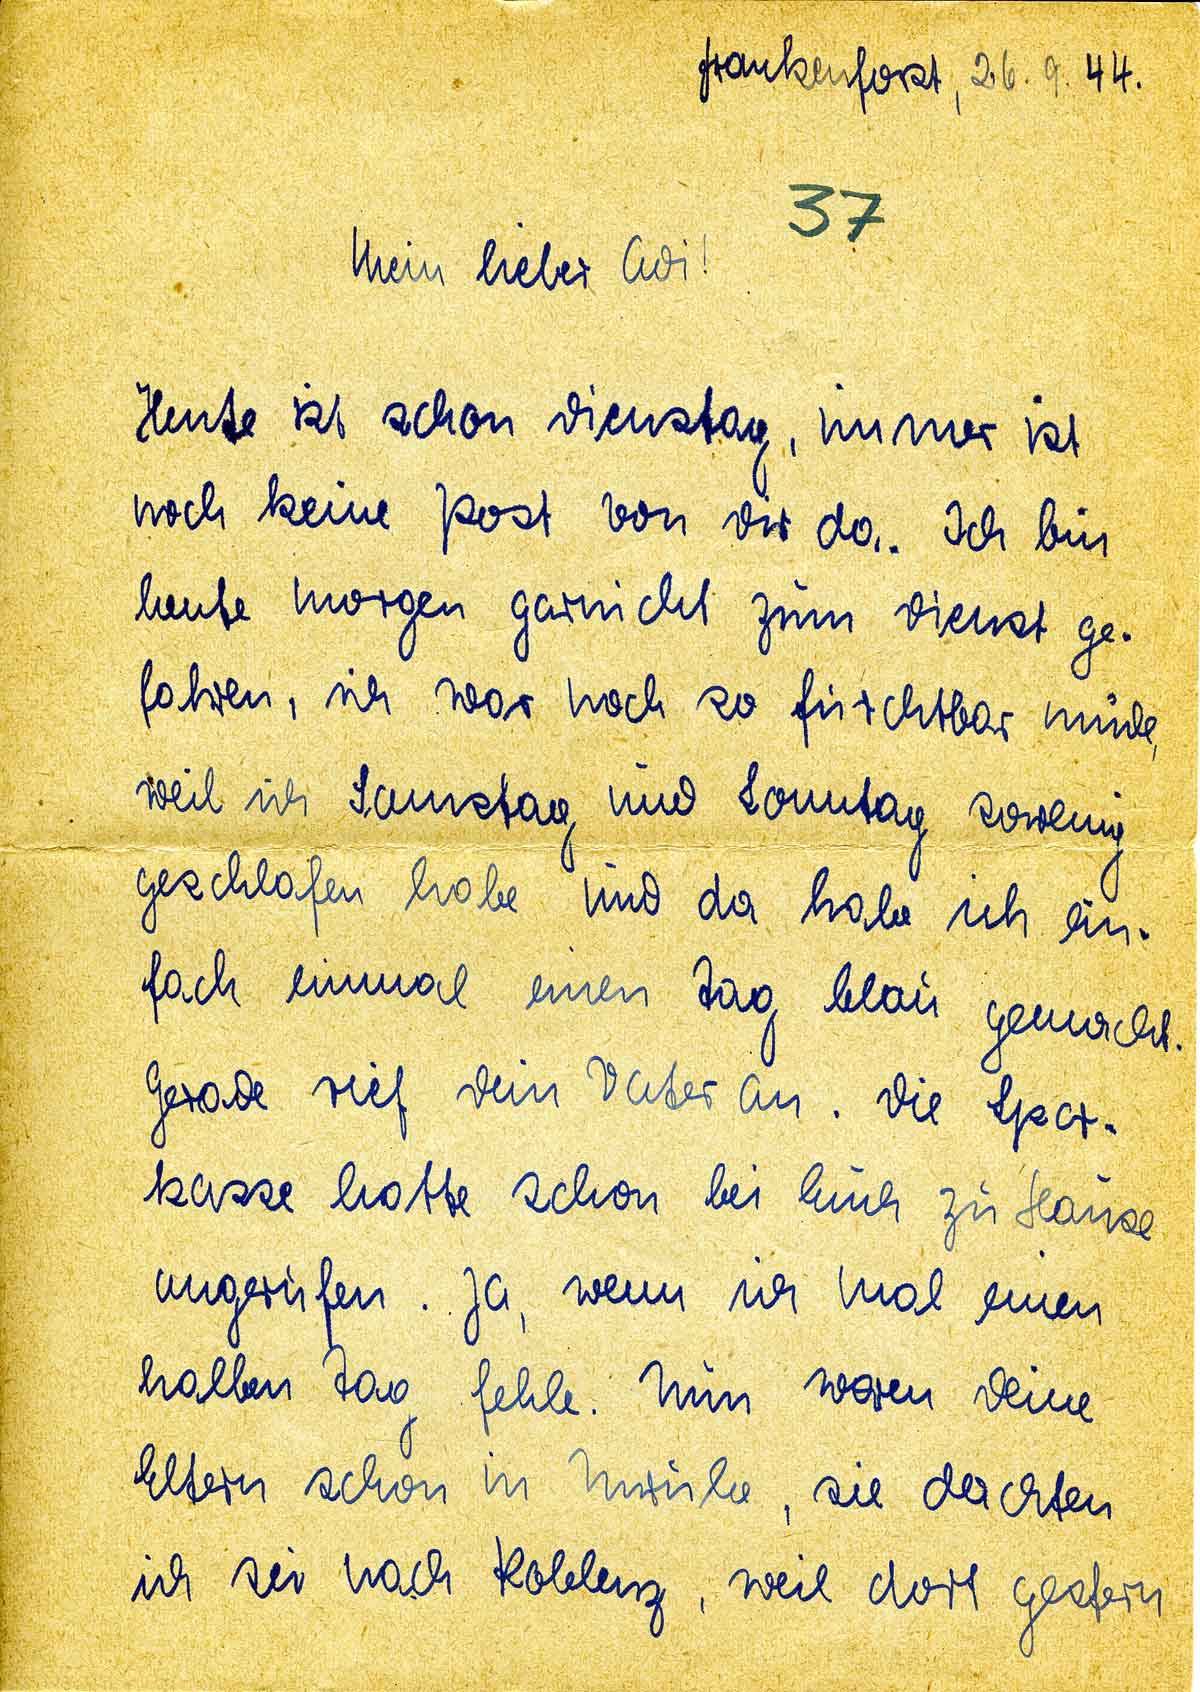 Frankenforst, 26. 9. 44.
37
Mein lieber Adi!
Heute ist schon Dienstag, immer ist
noch keine Post von Dir da. Ich bin
heute morgen garnicht zum Dienst ge-
fahren, ich war noch so furchtbar müde,
weil ich Samstag und Sonntag sowenig
geschlafen habe und da habe ich ein-
fach einmal einen Tag blau gemacht.
Gerade rief Dein Vater an. Die Spar-
kasse hatte schon bei Euch zu Hause
angerufen. Ja, wenn ich mal einen
halben Tag fehle. Nun waren Deine
Eltern schon in Unruhe, sie dachten
ich sei nach Koblenz, weil dort gestern